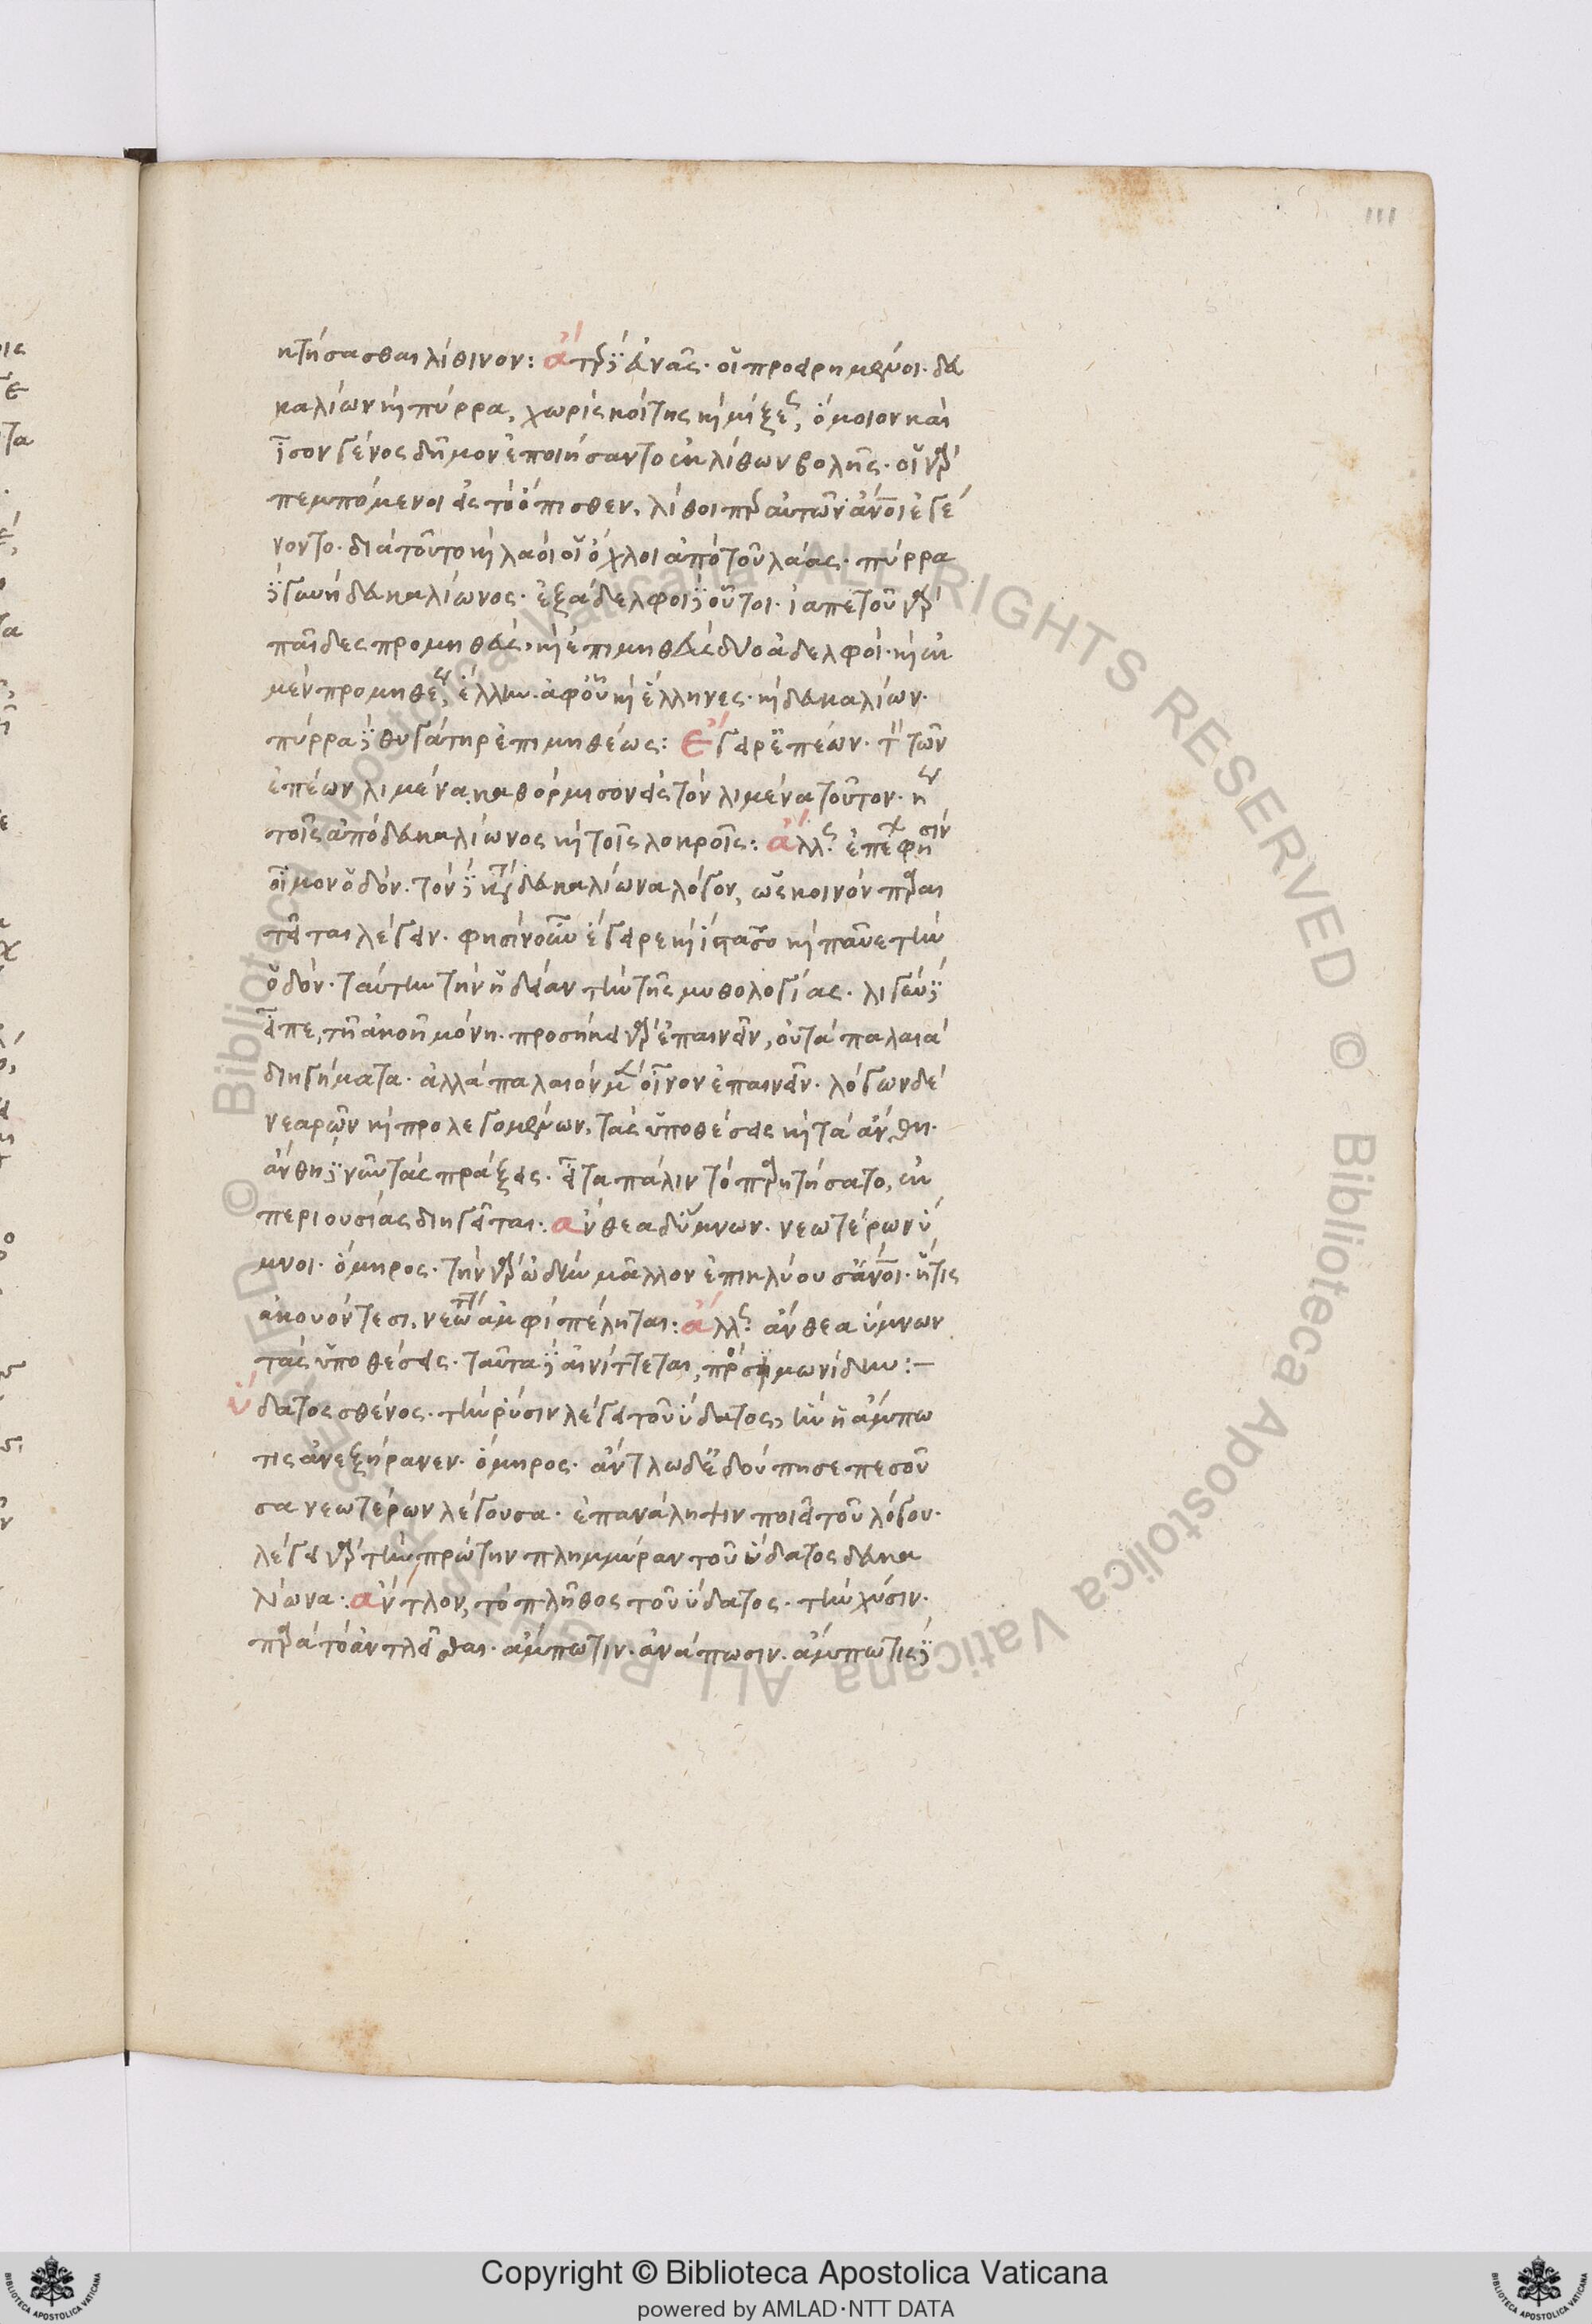 111
κτήσασθαι λίθινον: ἄτερ δ' εὐνᾶς· οἱ προειρημένοι· δευ
καλίων καὶ πύρρα, χωρὶς κοίτης καὶ μίξεως, ὅμοιον καὶ
ἶσον γένος δῆμον ἐποιήσαντο ἐκ λίθων βολῆς· οἱ γὰρ
πεμπόμενοι εἰς τὸ ὄπισθεν, λίθοι παρ' αὐτῶν ἄνθρωποι ἐγέ
νοντο· διὰ τοῦτο καὶ λαοὶ οἱ ὄχλοι ἀπὸ τοῦ λάας· πύρρα
δὲ γυνὴ δευκαλίωνος· ἐξάδελφοι δὲ οὗτοι· ἰαπετοῦ γὰρ
παῖδες προμηθεὺς, καὶ ἐπιμηθεὺς δύο ἀδελφοί· καὶ ἐκ
μὲν προμηθέως, ἕλλην· ἀφ' οὗ καὶ ἕλληνες· καὶ δευκαλίων·
πύρρα δὲ θυγάτηρ ἐπιμηθέως: Ἔγειρ' ἐπέων· τὸν τῶν
ἐπέων λιμένα, καθόρμισον εἰς τὸν λιμένα τοῦτον·
τοῖς ἀπὸ δευκαλίωνος καὶ τοῖς λοκροῖς: ἄλλως· ἐπέχφησιν
οἶμον ὁδόν· τὸν δὲ κατὰ δευκαλίωνα λόγον, ὡς κοινὸν παραι
τεῖται λέγειν· φησὶν οὖν ἔγειρε καὶ ἵστασο καὶ παῦε τὴν
ὁδόν· ταύτην τὴν ἡδεῖαν τὴν τῆς μυθολογίας· λιγεὺν δὲ
εἶπε, τῇ ἀκοῇ μόνῃ· προσήκει γὰρ ἐπαινεῖν, οὐ τὰ παλαιὰ
διηγήματα· ἀλλὰ παλαιὸν μὲν οἶνον ἐπαινεῖν· λόγων δὲ
νεαρῶν καὶ προλεγομένων, τὰς ὑποθέσεις καὶ τὰ ἄνθη·
ἄνθη δὲ νῦν τὰς πράξεις· εἶτα πάλιν τὸ παρῃτήσατο, ἐκ
περιουσίας διηγεῖται: ἄνθεα δ' ὕμνων· νεωτέρων ὕ
μνοι· ὅμηρος· τὴν γὰρ ἀοιδὴν μᾶλλον ἐπικλύουσ' ἄνθρωποι· ἥτις
ἀκουόντεσι, νεωτάτη ἀμφιπέληται: ἄλλως· ἄνθεα ὕμνων
τὰς ὑποθέσεις· ταῦτα δὲ αἰνίττεται, πρὸς σιμωνίδην:—
ὕδατος σθένος· τὴν ῥύσιν λέγει τοῦ ὕδατος, ἣν ἡ ἄμπω
τις ἀνεξήρανεν· ὅμηρος· ἄντλω δ' ἐδούπησε πεσοῦ
σα νεωτέρων λέγουσα· ἐπανάληψιν ποιεῖ τοῦ λόγου·
λέγει γὰρ τὴν πρώτην πλημμύραν τοῦ ὕδατος δευκα
λίωνα: ἄντλον, τὸ πλῆθος τοῦ ὕδατος· τὴν χύσιν·
παρὰ τὸ ἀντλεῖσθαι· ἄμπωτιν· ἀνάπωσιν· ἄμπωτις δὲ
Copyright © Biblioteca Apostolica Vaticana
powered by AMLAD·NTT DATA
© Biblioteca Apostolica Vaticana ALL RIGHTS RESERVED
© Biblioteca Apostolica Vaticana ALL RIGHTS RESERVED
BIBLIOTECA APOSTOLICA VATICANA
BIBLIOTECA APOSTOLICA VATICANA